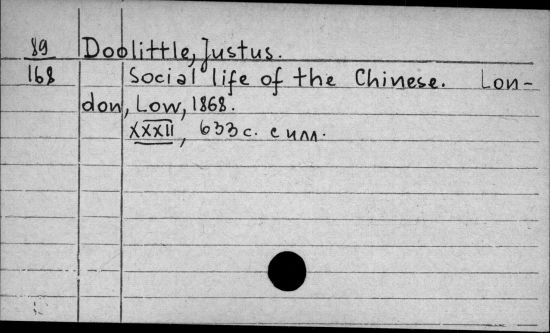 89 Doolittle, Justus.
168 Social life of the Chinese. Lon-
don, Low, 1868.
XXXII, 633 с. с илл.